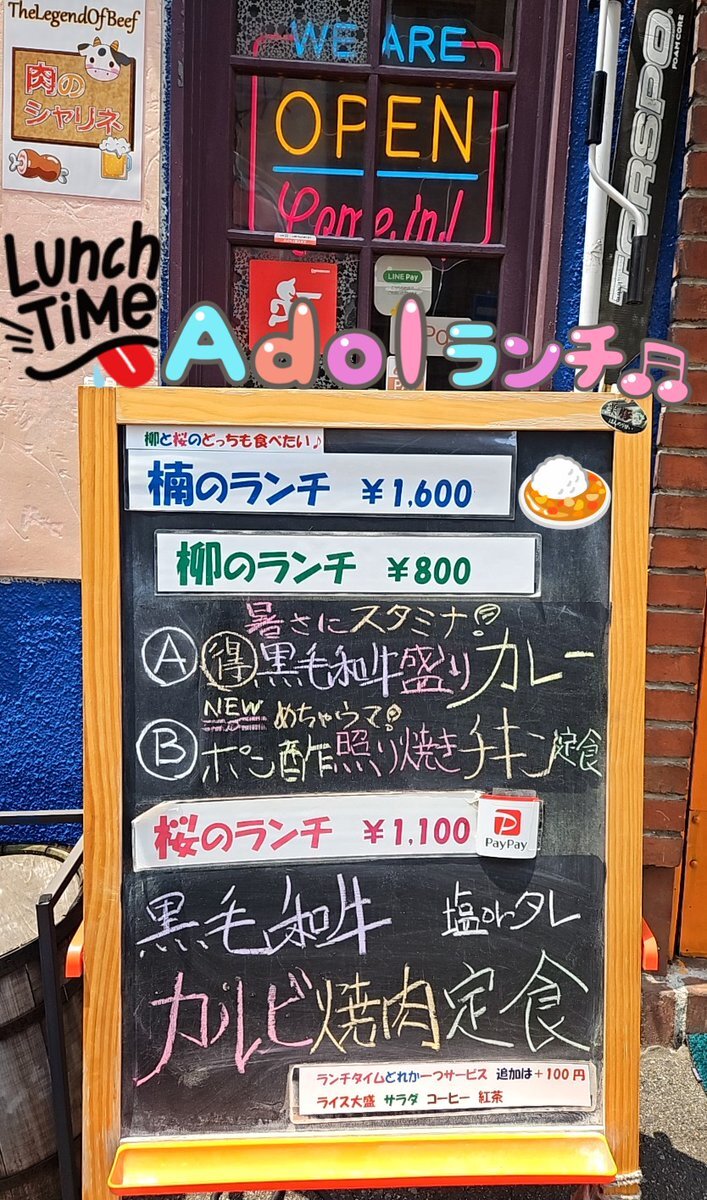 TheLegendOfBeef
肉の
シャリネ
WE ARE
OPEN
Come in!
FORSPO
FOAM CORE
LINE Pay
LUNCH
TIME
Adolランチ♬
柳と桜のどっちも食べたい♪
楠のランチ ¥1,600
柳のランチ ¥800
暑さにスタミナ!
Ⓐ 得 黒毛和牛盛りカレー
NEW めちゃうで!
Ⓑ ポン酢照り焼きチキン定食
桜のランチ ¥1,100
PayPay
黒毛和牛 塩orタレ
カルビ焼肉定食
ランチタイムどれか一つサービス 追加は+100円
ライス大盛 サラダ コーヒー 紅茶